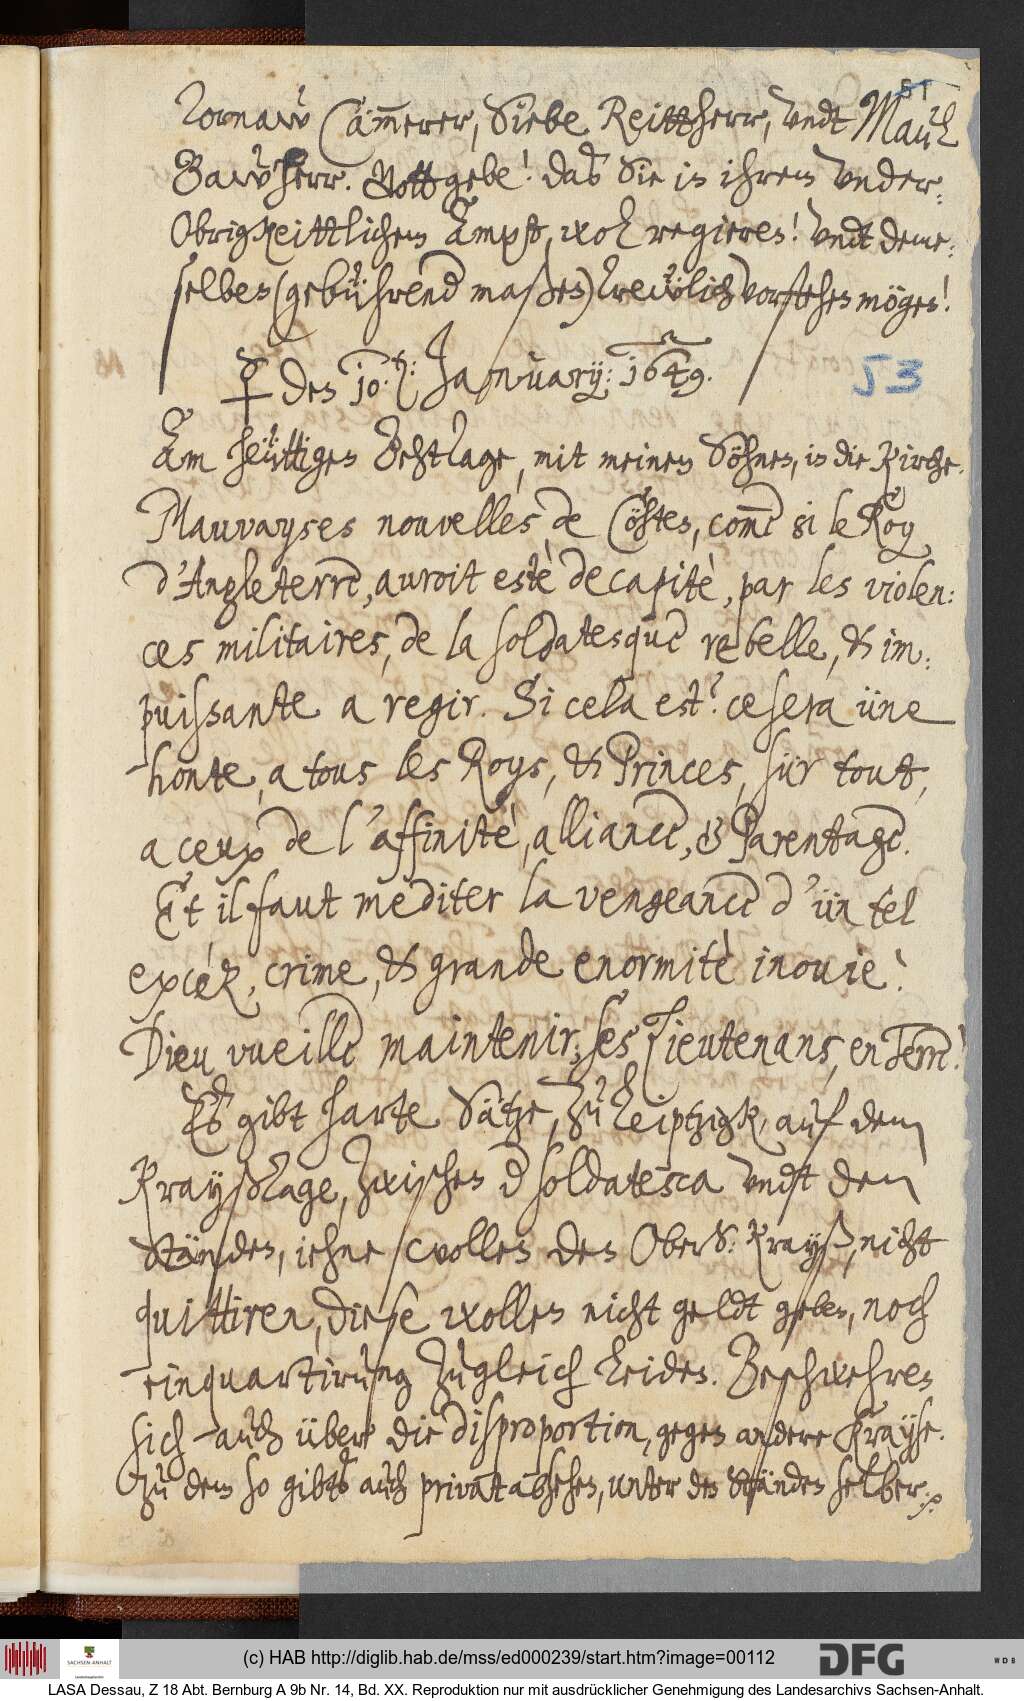 51
Tornaw Cäm̄erer, Siebe Reittherr, vndt Maul
Bawherr. Gott gebe! daß Sie in ihrem vnder:
Obrigkeittlichem Ampt, wol regieren! vndt dem:
selben (gebührend maßen) trewlich vorstehen mögen!
☿ den 10. t: January: 1649.
53
Am heüttigen Behttage, mit meinen Söhnen, in die Kirche.
Mauvayses nouvelles, de Cöhten, comẽ si le Roy
d'Angleterre, auroit estè decapitè, par les violen:
ces militaires, de la soldatesque rebelle, & im:
puissante a regir. Si cela est? ce sera üne
honte, a tous les Roys, & Princes, sür tout,
a ceux de l'affinitè, alliance, & Parentage.
Et il faut mediter la vengeance d'ün tel
excéz, crime, & grande enormitè inouie!
Dieu vueille maintenir, ses Lieutenans, en Terre!
Es gibt harte Sätze, zu Leiptzigk, auf dem
Krayßtage, zwischen d soldatesca vndt den
Ständen, iehne wollen den OberS: Krayß, nicht
quittiren, diese wollen nicht geldt geben, noch
einquartirung zugleich leiden. Beschwehren
sich auch über die disproportion, gegen andere Krayße.
Zu dem so gibts auch privat absehen, unter den Ständen selber.
(c) HAB http://diglib.hab.de/mss/ed000239/start.htm?image=00112
SACHSEN-ANHALT
DFG
WDB
LASA Dessau, Z 18 Abt. Bernburg A 9b Nr. 14, Bd. XX. Reproduktion nur mit ausdrücklicher Genehmigung des Landesarchivs Sachsen-Anhalt.